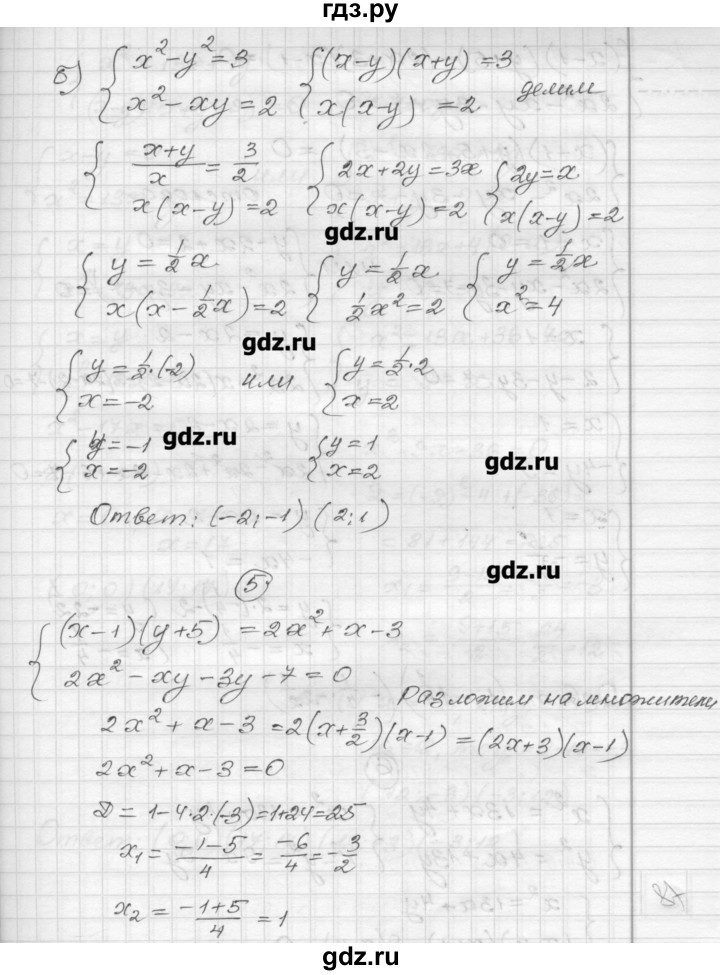 гдз.ру
б) { x² − y² = 3 { (x−y)(x+y) = 3
x² − xy = 2 x(x−y) = 2 делим
{ (x+y)/x = 3/2 { 2x+2y = 3x { 2y = x
x(x−y) = 2 x(x−y) = 2 x(x−y) = 2
gdz.ru
{ y = 1/2 x { y = 1/2 x { y = 1/2 x
x(x − 1/2 x) = 2 1/2 x² = 2 x² = 4
gdz.ru
{ y = 1/2 · (−2) или { y = 1/2 · 2
x = −2 x = 2
{ y = −1 gdz.ru { y = 1
x = −2 x = 2 gdz.ru
Ответ: (−2; −1) (2; 1)
5 gdz.ru
{ (x−1)(y+5) = 2x² + x − 3
2x² − xy − 3y − 7 = 0
Разложим на множители
2x² + x − 3 = 2(x + 3/2)(x−1) = (2x+3)(x−1)
2x² + x − 3 = 0
D = 1 − 4·2·(−3) = 1+24 = 25
x₁ = (−1−5)/4 = −6/4 = −3/2
x₂ = (−1+5)/4 = 1
gdz.ru